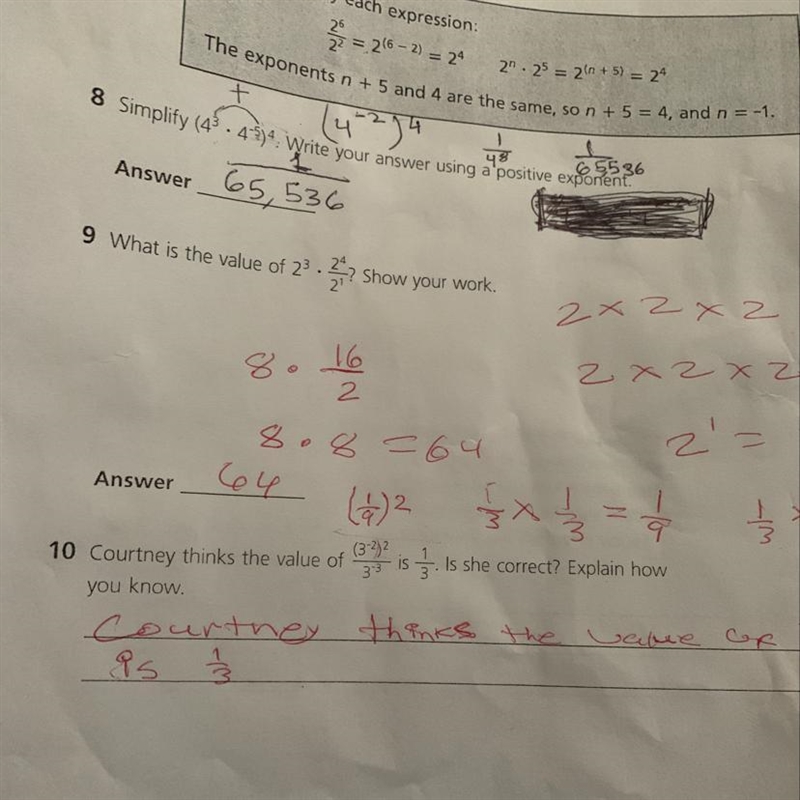 each expression:
2⁶/2² = 2⁽⁶ ⁻ ²⁾ = 2⁴ 2ⁿ · 2⁵ = 2⁽ⁿ ⁺ ⁵⁾ = 2⁴
The exponents n + 5 and 4 are the same, so n + 5 = 4, and n = –1.
+
(4⁻²)⁴
8 Simplify (4³ · 4⁻⁵)⁴. Write your answer using a positive exponent.
1/4⁸ 1/65536
Answer 1/65,536
9 What is the value of 2³ · 2⁴/2¹? Show your work.
2 × 2 × 2
8 · 16/2
2 × 2 × 2
8 · 8 = 64
2¹ =
Answer 64
(1/9)2 1/3 × 1/3 = 1/9 1/3 ×
10 Courtney thinks the value of (3⁻²)²/3⁻³ is 1/3. Is she correct? Explain how
you know.
Courtney thinks the value of
is 1/3